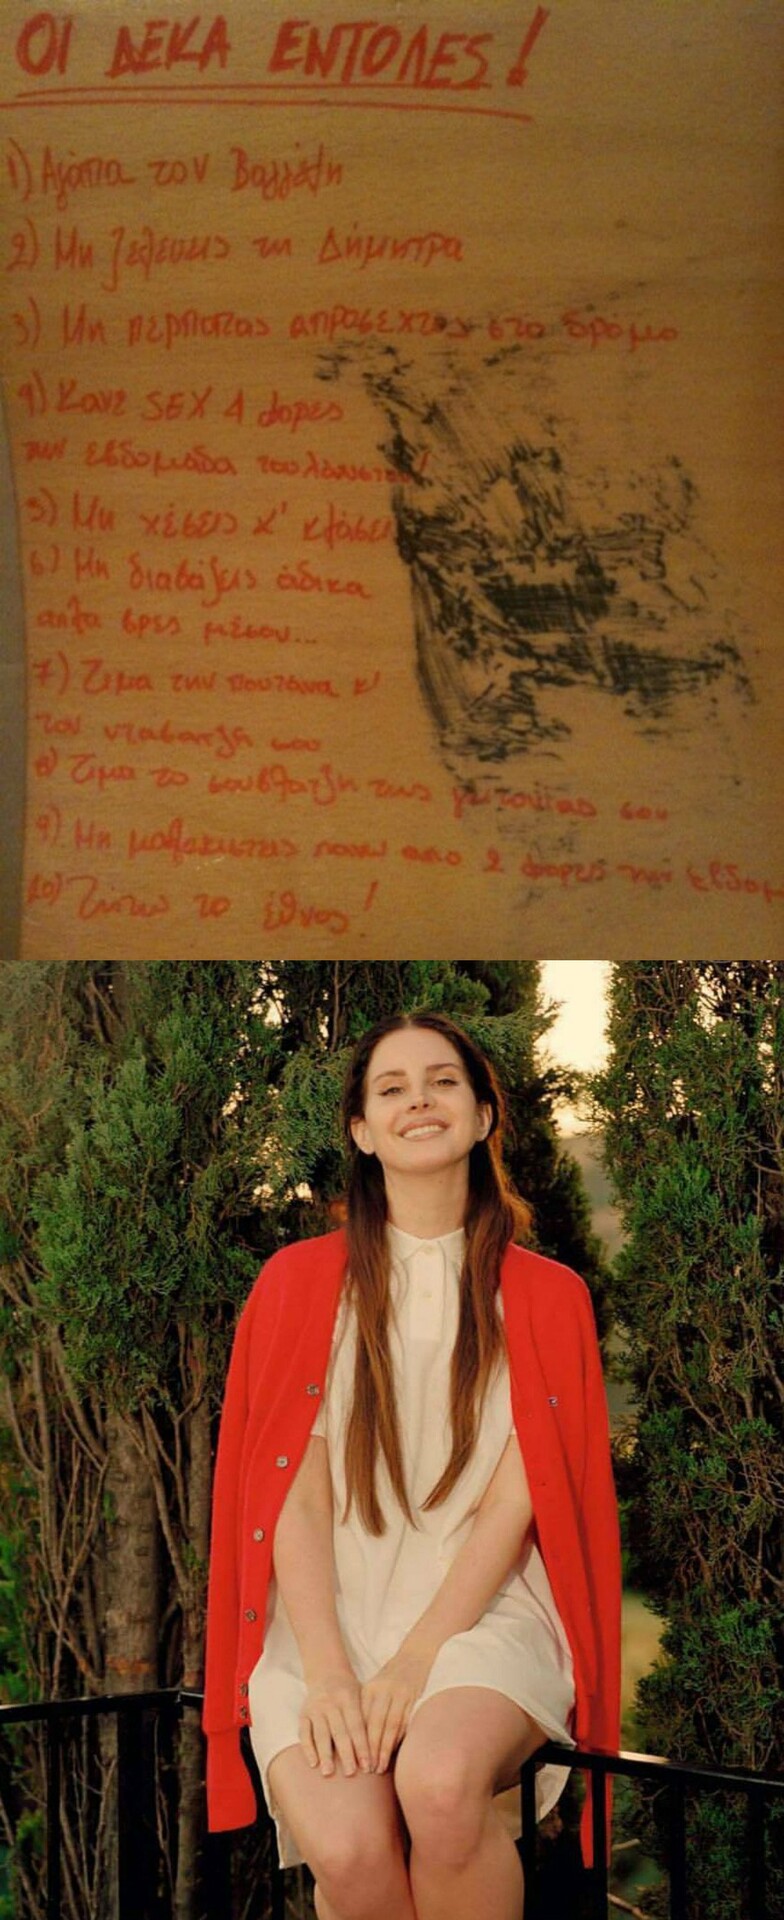 ΟΙ ΔΕΚΑ ΕΝΤΟΛΕΣ!
1) Αγάπα τον
2) Μη ζελευεις τη Δήμητρα
3) Μη πέρπατας απροσεχτος στο δρόμο
4) Κανε SEX 4 φορες
την εβδομάδα τουλάχιστον!
5) Μη χέσεις κ' κλάσεις
6) Μη διαβάζεις άδικα
απλα βρες μέσον...
7) Τιμα την πουτάνα κ'
τον νταβατζή σου
8) Τιμα το σουβλατζή της γειτονίας σου
9) Μη μαλακιστείς πανω απο 2 φορες την εβδομ
10) Ζήτω το έθνος!